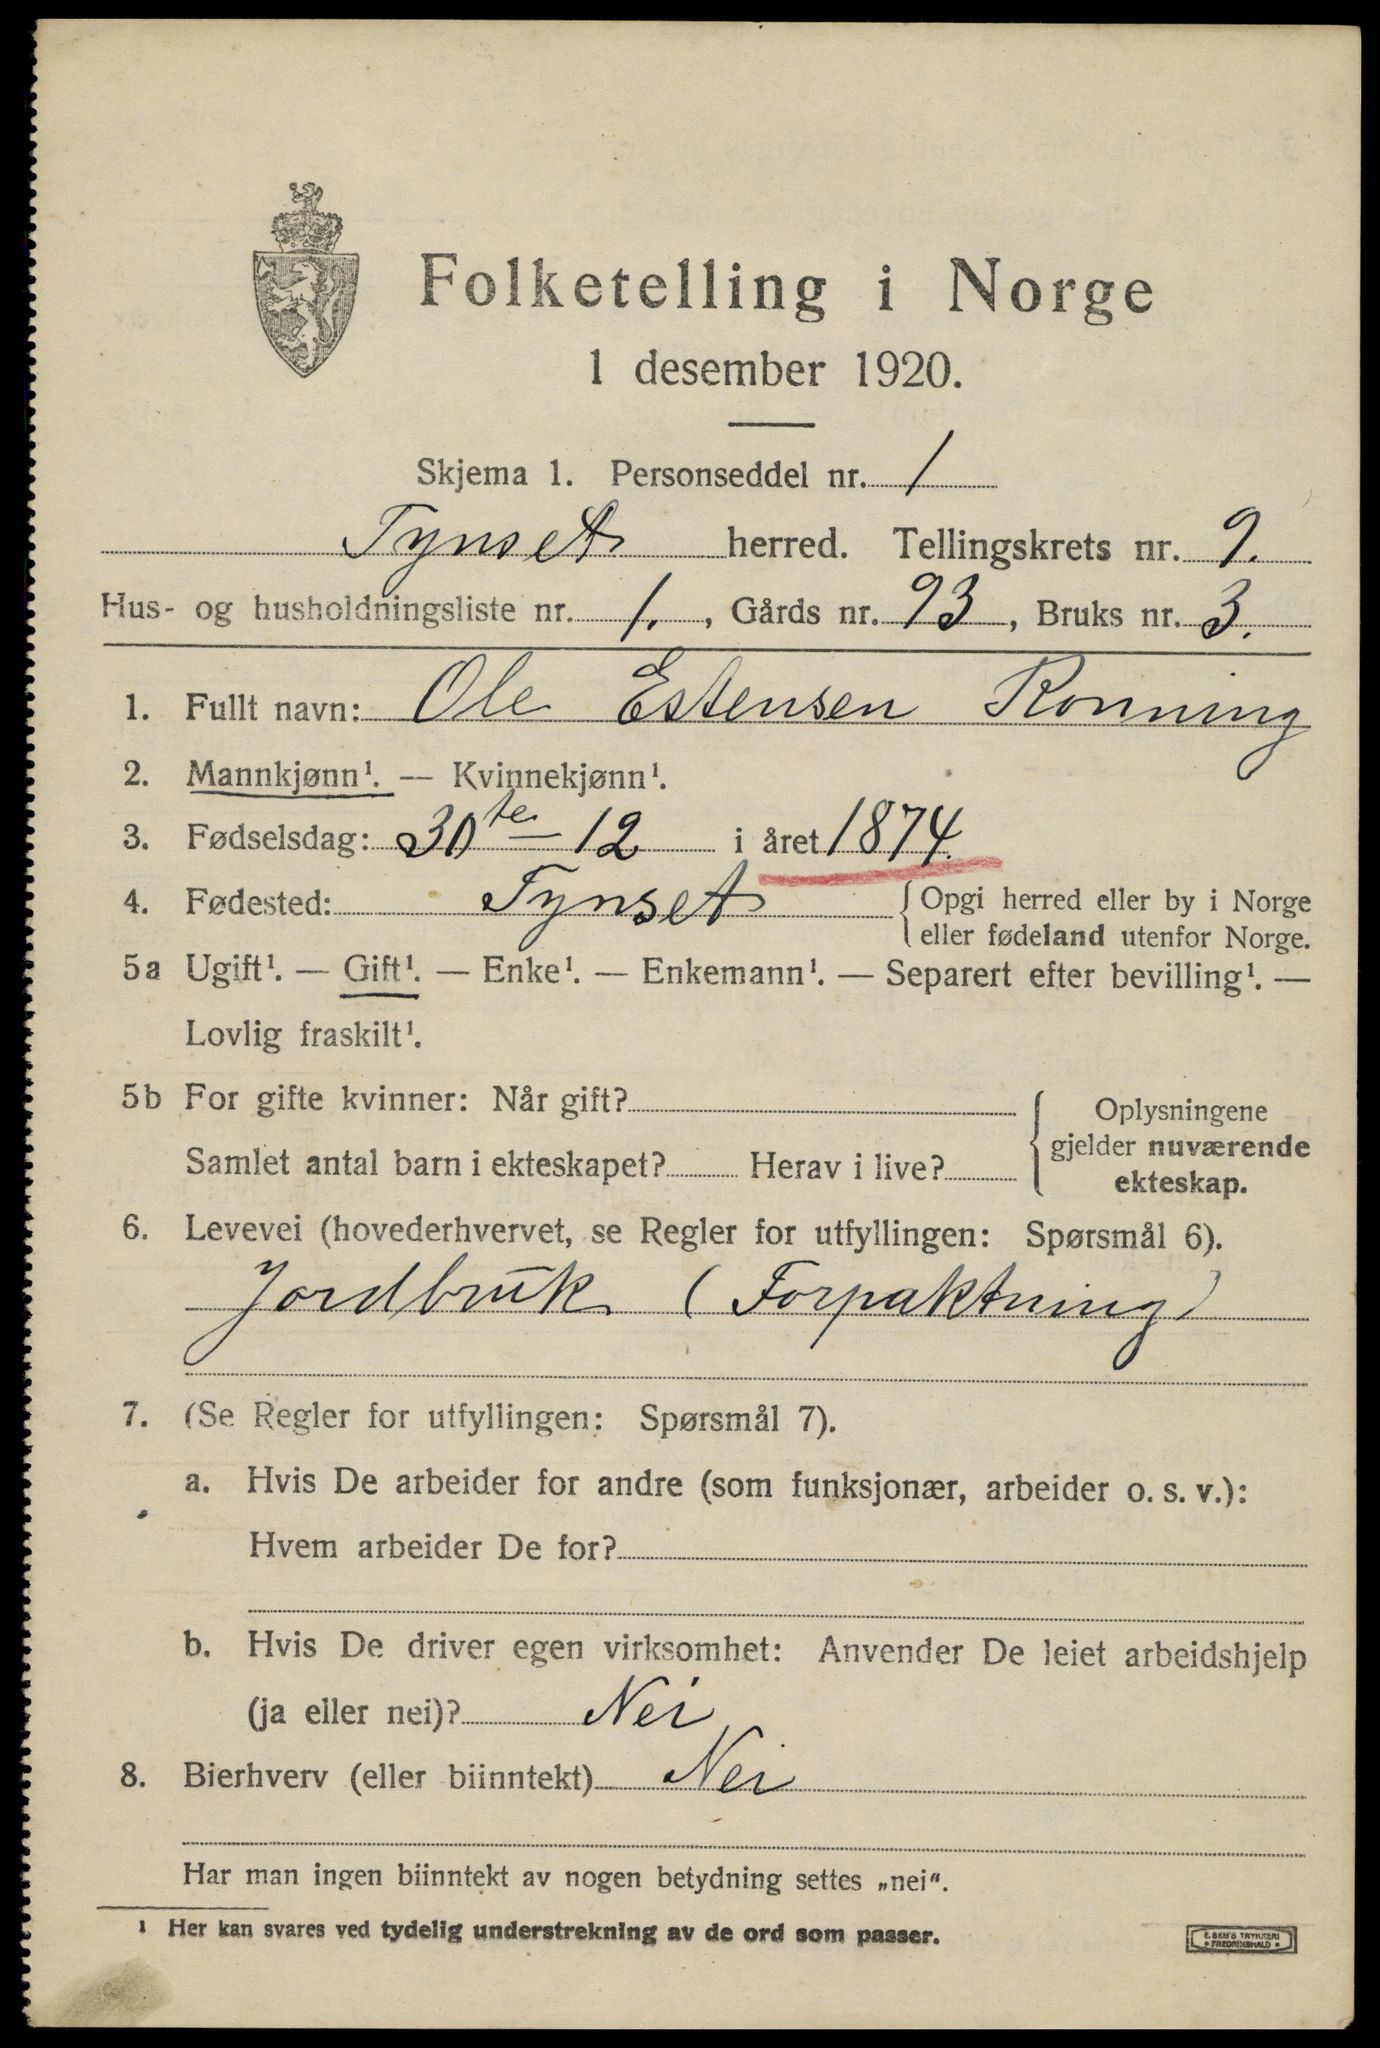 Folketelling i Norge
1 desember 1920.
Skjema 1. Personseddel nr. 1
Tynset herred. Tellingskrets nr. 9.
Hus- og husholdningsliste nr. 1., Gårds nr. 93, Bruks nr. 3.
1. Fullt navn: Ole Estensen Ronning
2. Mannkjønn¹. — Kvinnekjønn¹.
3. Fødselsdag: 30te 12 i året 1874.
4. Fødested: Tynset { Opgi herred eller by i Norge
eller fødeland utenfor Norge.
5a Ugift¹. — Gift¹. — Enke¹. — Enkemann¹. — Separert efter bevilling¹. —
Lovlig fraskilt¹.
5b For gifte kvinner: Når gift?
Samlet antal barn i ekteskapet? Herav i live?
{ Oplysningene
gjelder nuværende
ekteskap.
6. Levevei (hovederhvervet, se Regler for utfyllingen: Spørsmål 6).
Jordbruk (Forpaktning)
7. (Se Regler for utfyllingen: Spørsmål 7).
a. Hvis De arbeider for andre (som funksjonær, arbeider o. s. v.):
Hvem arbeider De for?
b. Hvis De driver egen virksomhet: Anvender De leiet arbeidshjelp
(ja eller nei)? Nei
8. Bierhverv (eller biinntekt) Nei
Har man ingen biinntekt av nogen betydning settes „nei“.
¹ Her kan svares ved tydelig understrekning av de ord som passer.
E. SEM'S TRYKKERI
• FREDRIKSHALD •